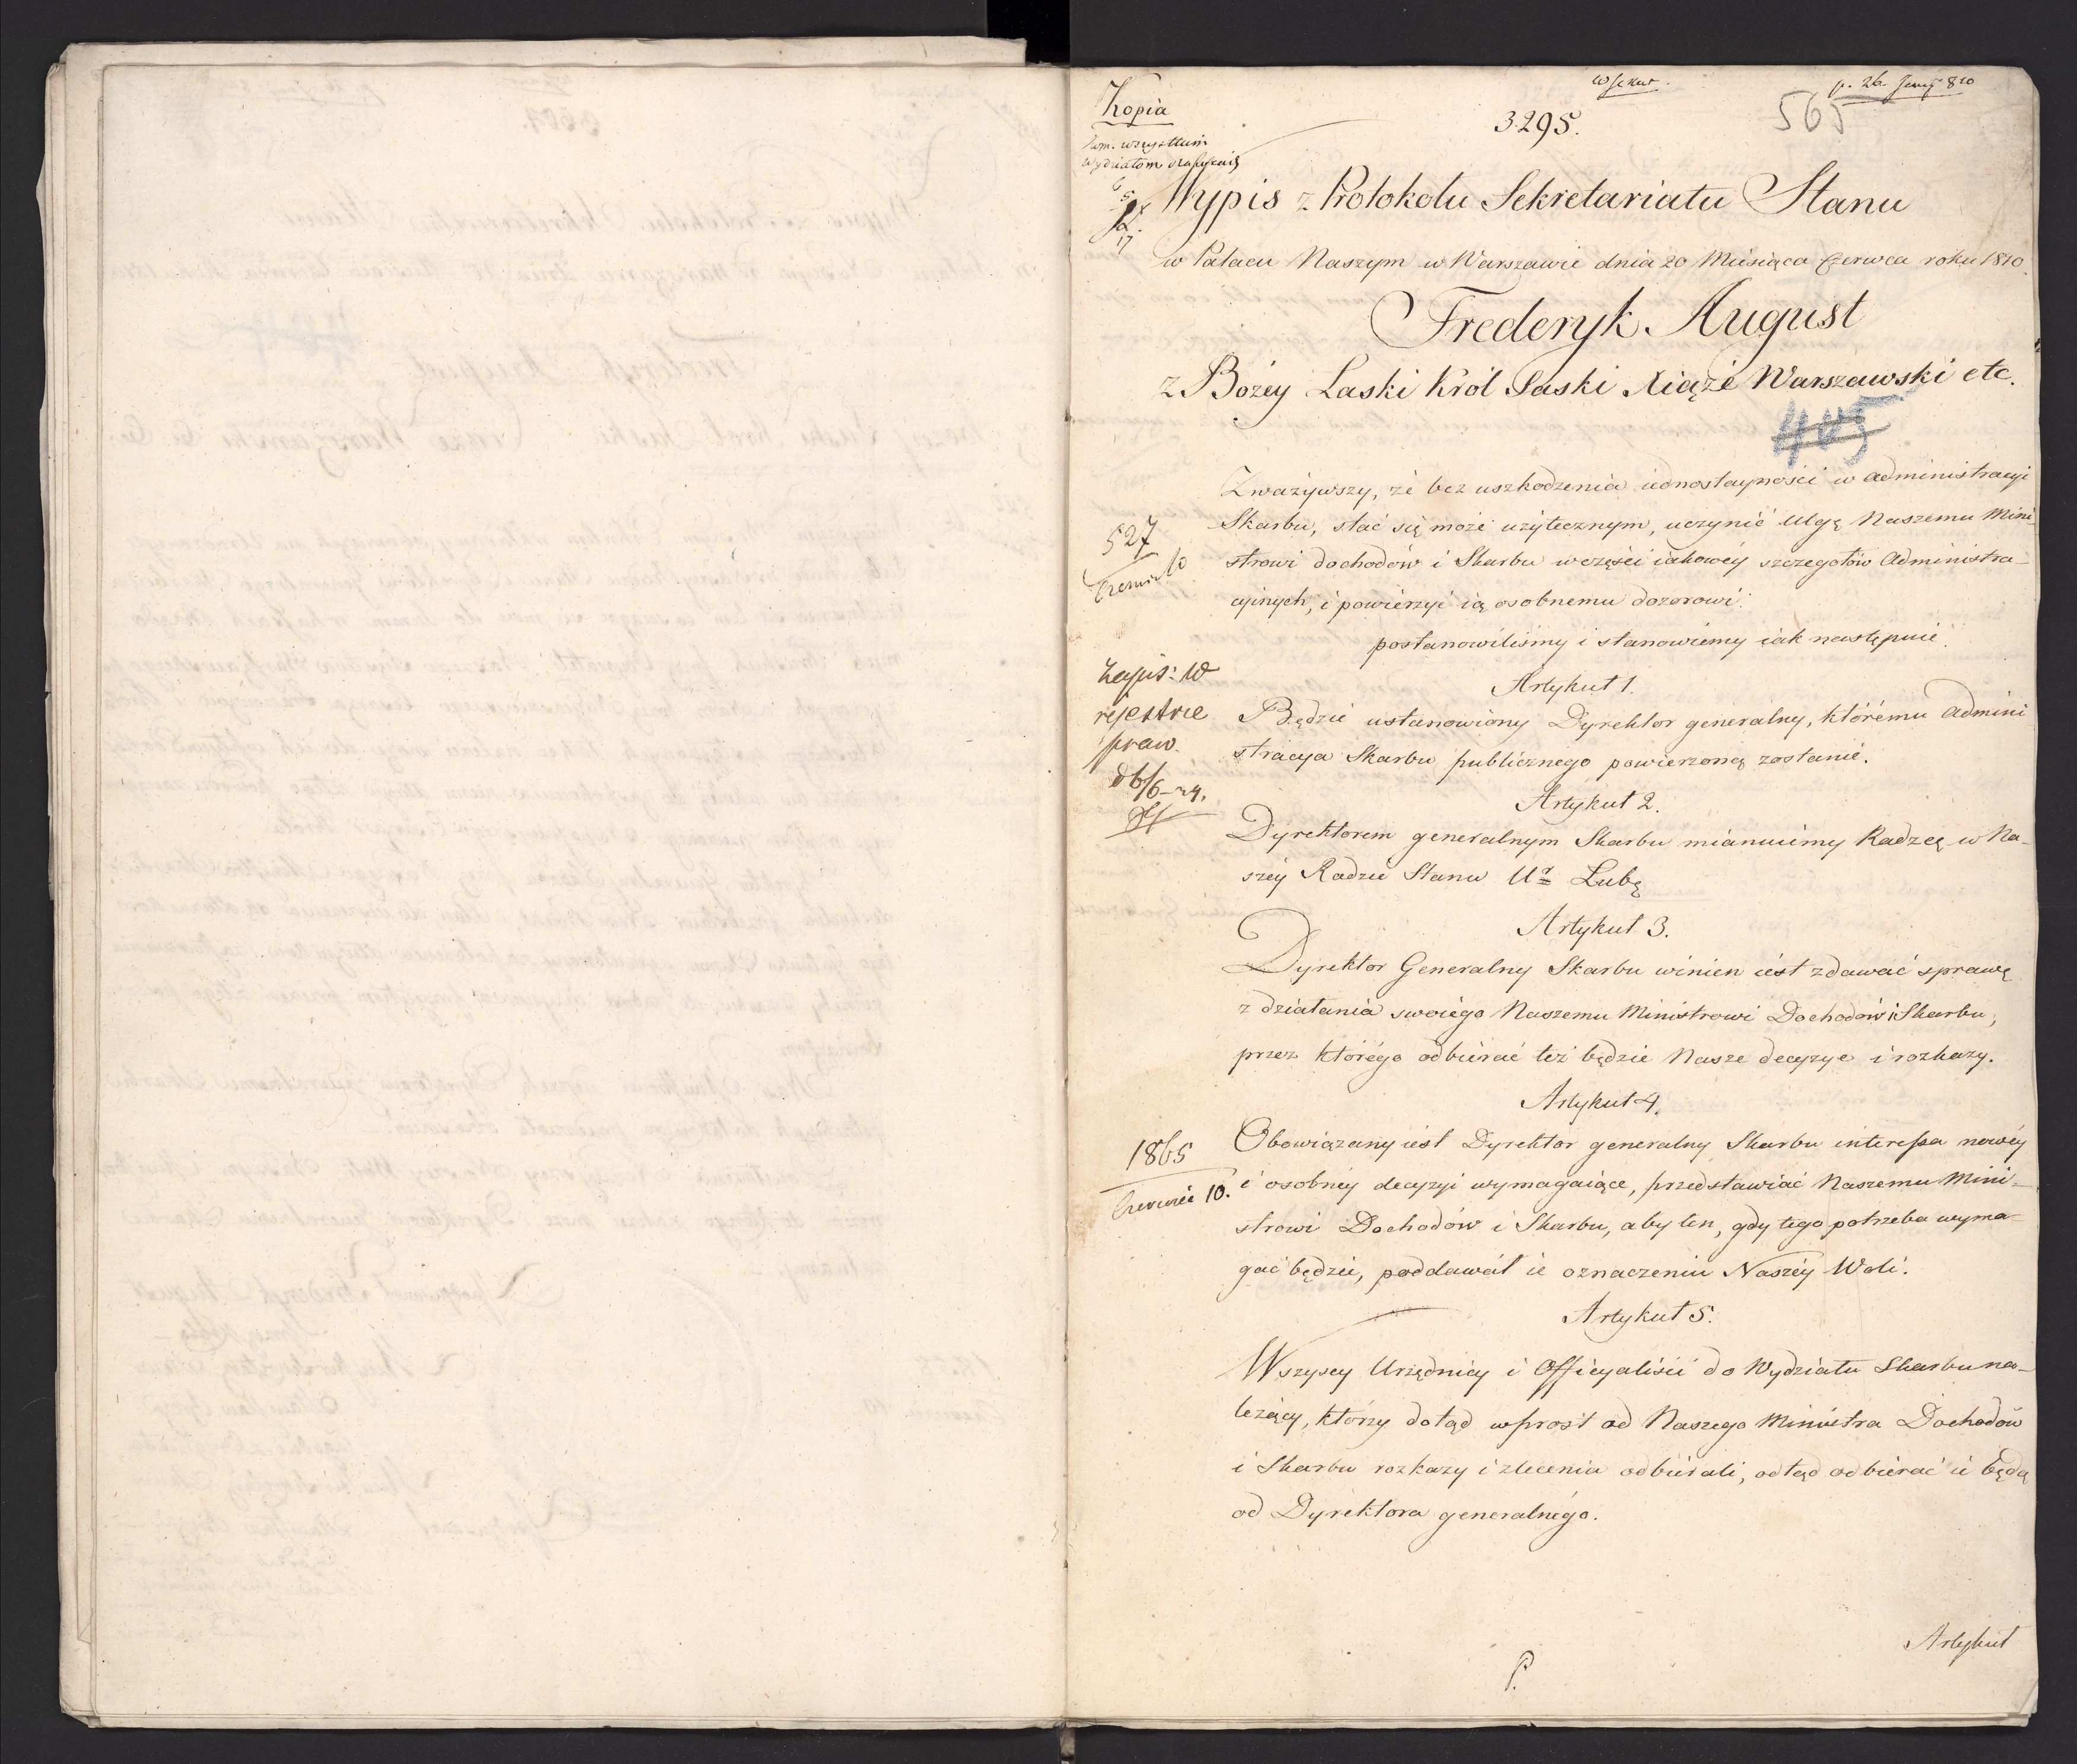 Kopia
3295.
565
p. 26. 810
wszystkim
Wydziałom
Wypis z Protokołu Sekretariatu Stanu
w Pałacu Naszym w Warszawie dnia 20 Miesiąca Czerwca roku 1810.
Frederyk August
z Bożey Łaski Król Saski Xiąże Warszawski etc.
405
Zważywszy, że bez uszkodzenia iednostayności w administracyi
Skarbu, stać się może użytecznym, uczynić Ulgę Naszemu Mini-
strowi dochodów i Skarbu w części iakowéy szczegółów Administra-
cyinych, i powierzyć ią osobnemu dozorowi.
postanowiliśmy i stanowiemy iak następuie.
527
10
Artykuł 1.
Będzie ustanowiony Dyrektor generalny, któremu admini-
stracya Skarbu publicznego powierzoną zostanie.
Zapis: w
rejestrze
praw.
Artykuł 2.
Dyrektorem generalnym Skarbu mianuiemy Radzcę w Na-
széy Radzie Stanu Ur. Lubę
Artykuł 3.
Dyrektor Generalny Skarbu winien iest zdawać sprawę
z działania swoiégo Naszemu Ministrowi Dochodów i Skarbu,
przez którégo odbiérać też będzie Nasze decyzye i rozkazy.
Artykuł 4.
1865
Czerwiec 10.
Obowiązany iest Dyrektor generalny Skarbu interessa nowéy
i osobnéy decyzyi wymagaiące, przedstawiać Naszemu Mini-
strowi Dochodów i Skarbu, aby ten, gdy tego potrzeba wyma-
gać będzie, poddawał ie oznaczeniu Naszéy Woli.
Artykuł 5.
Wszyscy Urzędnicy i Officyaliści do Wydziału Skarbu na-
leżący, którzy dotąd wprost od Naszego Ministra Dochodów
i Skarbu rozkazy i zlecenia odbiérali, odtąd odbierać ie będą
od Dyrektora generalnégo.
Artykuł